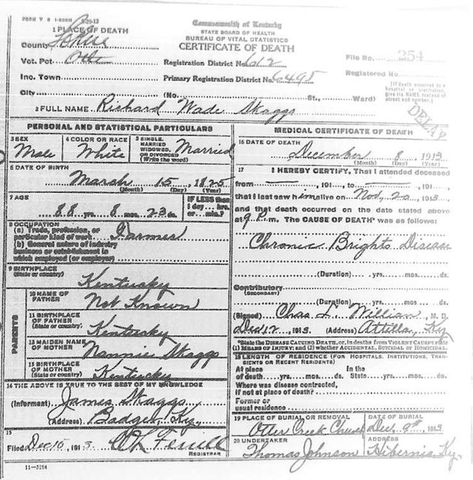 Commonwealth of Kentucky
STATE BOARD OF HEALTH
BUREAU OF VITAL STATISTICS
CERTIFICATE OF DEATH
1 PLACE OF DEATH
County
Vot. Pct Otter Registration District No. 612 File No. 254
Inc. Town Primary Registration District No. 6498 Registered No.
City (No. St., Ward)
2 FULL NAME Richard Wade Skaggs
PERSONAL AND STATISTICAL PARTICULARS
3 SEX Male
4 COLOR OR RACE White
5 SINGLE, MARRIED, WIDOWED, OR DIVORCED (Write the word) Married
6 DATE OF BIRTH
March 15 1825
(Month) (Day) (Year)
7 AGE
88 yrs. 8 mos. 23 ds.
IF LESS than 1 day, hrs. or min.?
8 OCCUPATION
(a) Trade, profession, or particular kind of work Farmer
(b) General nature of industry business or establishment in which employed (or employer)
9 BIRTHPLACE
(State or country) Kentucky
PARENTS
10 NAME OF FATHER Not Known
11 BIRTHPLACE OF FATHER
(State or country) Kentucky
12 MAIDEN NAME OF MOTHER Nannie Skaggs
13 BIRTHPLACE OF MOTHER
(State or country) Kentucky
14 THE ABOVE IS TRUE TO THE BEST OF MY KNOWLEDGE
(Informant) James Skaggs
(Address) Badger, Ky.
15
Filed Dec 10 1913
REGISTRAR
11-3184
MEDICAL CERTIFICATE OF DEATH
16 DATE OF DEATH
December 8 1913
(Month) (Day) (Year)
17 I HEREBY CERTIFY, That I attended deceased
from 191 to 191
that I last saw him alive on Nov. 20 1913
and that death occurred on the date stated above
at 9 P.m. The CAUSE OF DEATH was as follows:
Chronic Brights Disease
(Duration) yrs. mos. ds.
Contributory
(SECONDARY)
(Duration) yrs. mos. ds.
(Signed) Chas. L. William M. D.
1913 (Address) Attilla, Ky
*State the DISEASE CAUSING DEATH, or, in deaths from VIOLENT CAUSES state
(1) MEANS OF INJURY; and (2) whether ACCIDENTAL, SUICIDAL or HOMICIDAL.
18 LENGTH OF RESIDENCE (FOR HOSPITALS, INSTITUTIONS, TRANSIENTS OR RECENT RESIDENTS)
At place of death yrs. mos. ds. State yrs. mos. ds.
Where was disease contracted,
if not at place of death?
Former or
usual residence
19 PLACE OF BURIAL OR REMOVAL Otter Creek Church
DATE OF BURIAL Dec. 9th 1913
20 UNDERTAKER Thomas Johnson
ADDRESS Hibernia, Ky.